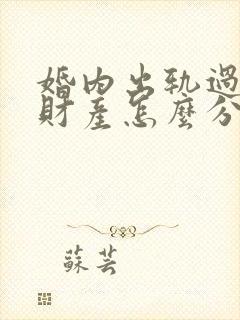 婚內出軌過
財產怎麼分
蘇芸